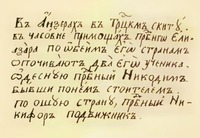 Въ Анзерахъ въ Трцкмъ скиту,
въ часовне при мощахъ Прбнгω Елеа-
зара по ѡбеимъ егѡ странамъ
опочиваютъ два егѡ ученика.
Ѡдесную прбный Никодимъ
бывши понемъ стоителемъ.
по ошую страну, прбный Ни-
кифоръ подвижникъ.